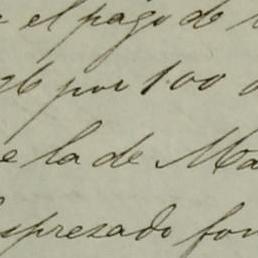 el pago de
por 100
e la de Ma
spresado fon